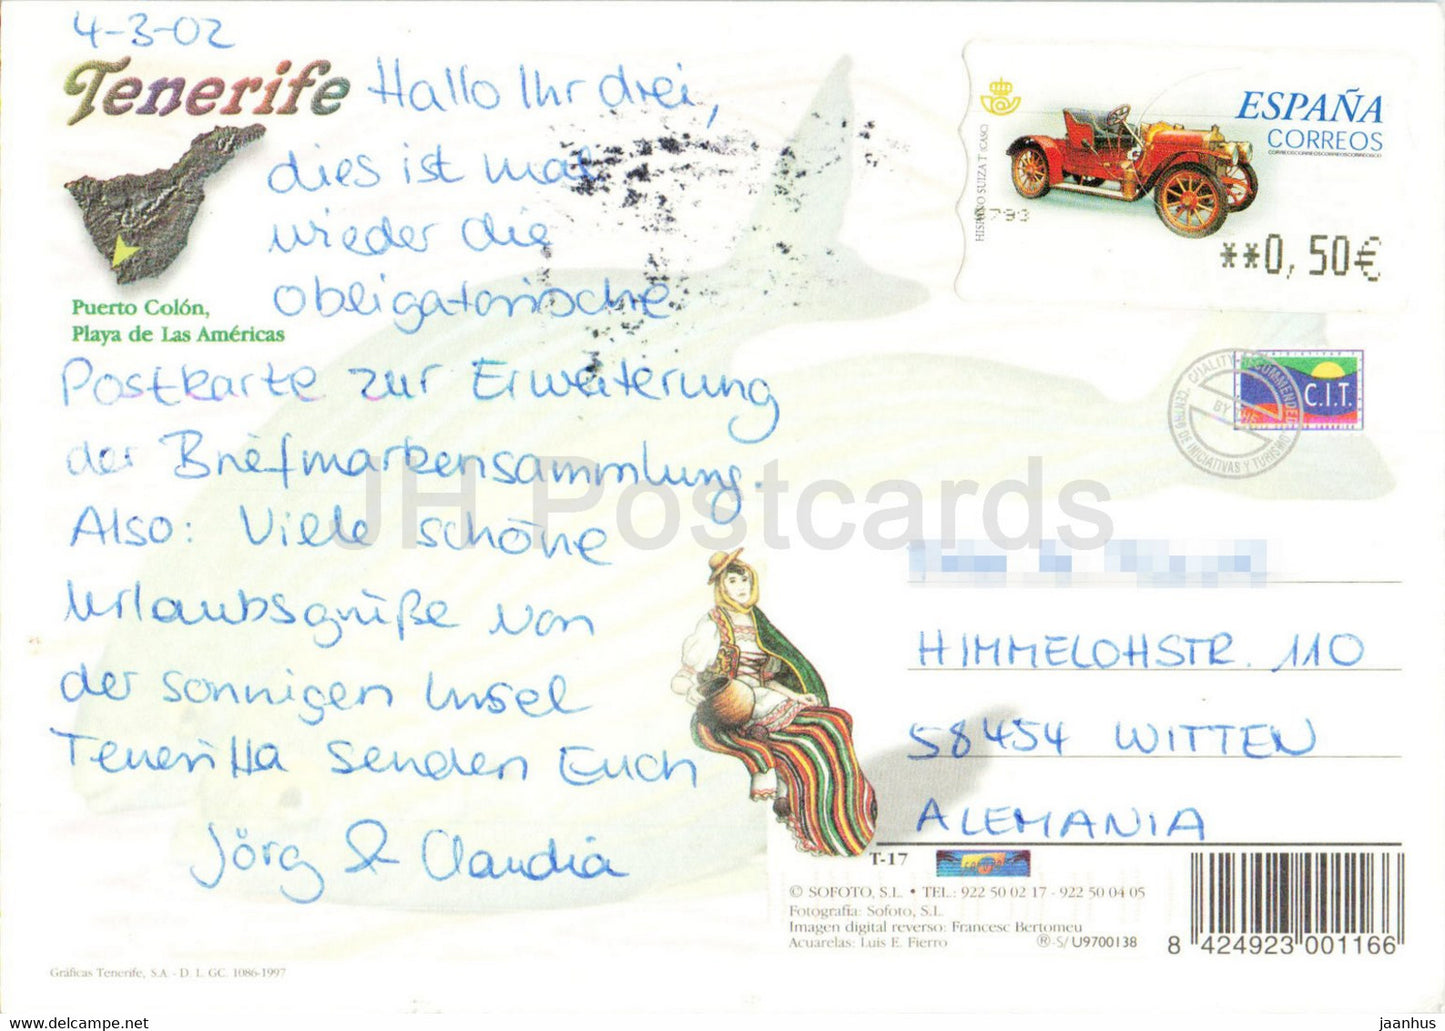 4-3-02
Tenerife
Hallo Ihr drei,
dies ist mal
wieder die
obligatorische
Puerto Colón,
Playa de Las Américas
Postkarte zur Erweiterung
der Briefmarkensammlung.
Also: Viele schöne
Urlaubsgrüße von
der sonnigen Insel
Teneriffa senden Euch
Jörg & Claudia
ESPAÑA
CORREOS
HISPANO SUIZA
**0,50€
QUALITY RECOMMENDED
BY THE
CENTRO DE INICIATIVAS Y TURISMO
C.I.T.
HIMMELOHSTR. 110
58454 WITTEN
ALEMANIA
T-17
© SOFOTO, S.L. • TEL.: 922 50 02 17 - 922 50 04 05
Fotografía: Sofoto, S.L.
Imagen digital reverso: Francesc Bertomeu
Acuarelas: Luis E. Fierro
®-S/U9700138
8 424923 001166
Gráficas Tenerife, S.A. - D. L. GC. 1086-1997
JH Postcards
https://www.ebay.com/usr/jaanhus
jaanhus